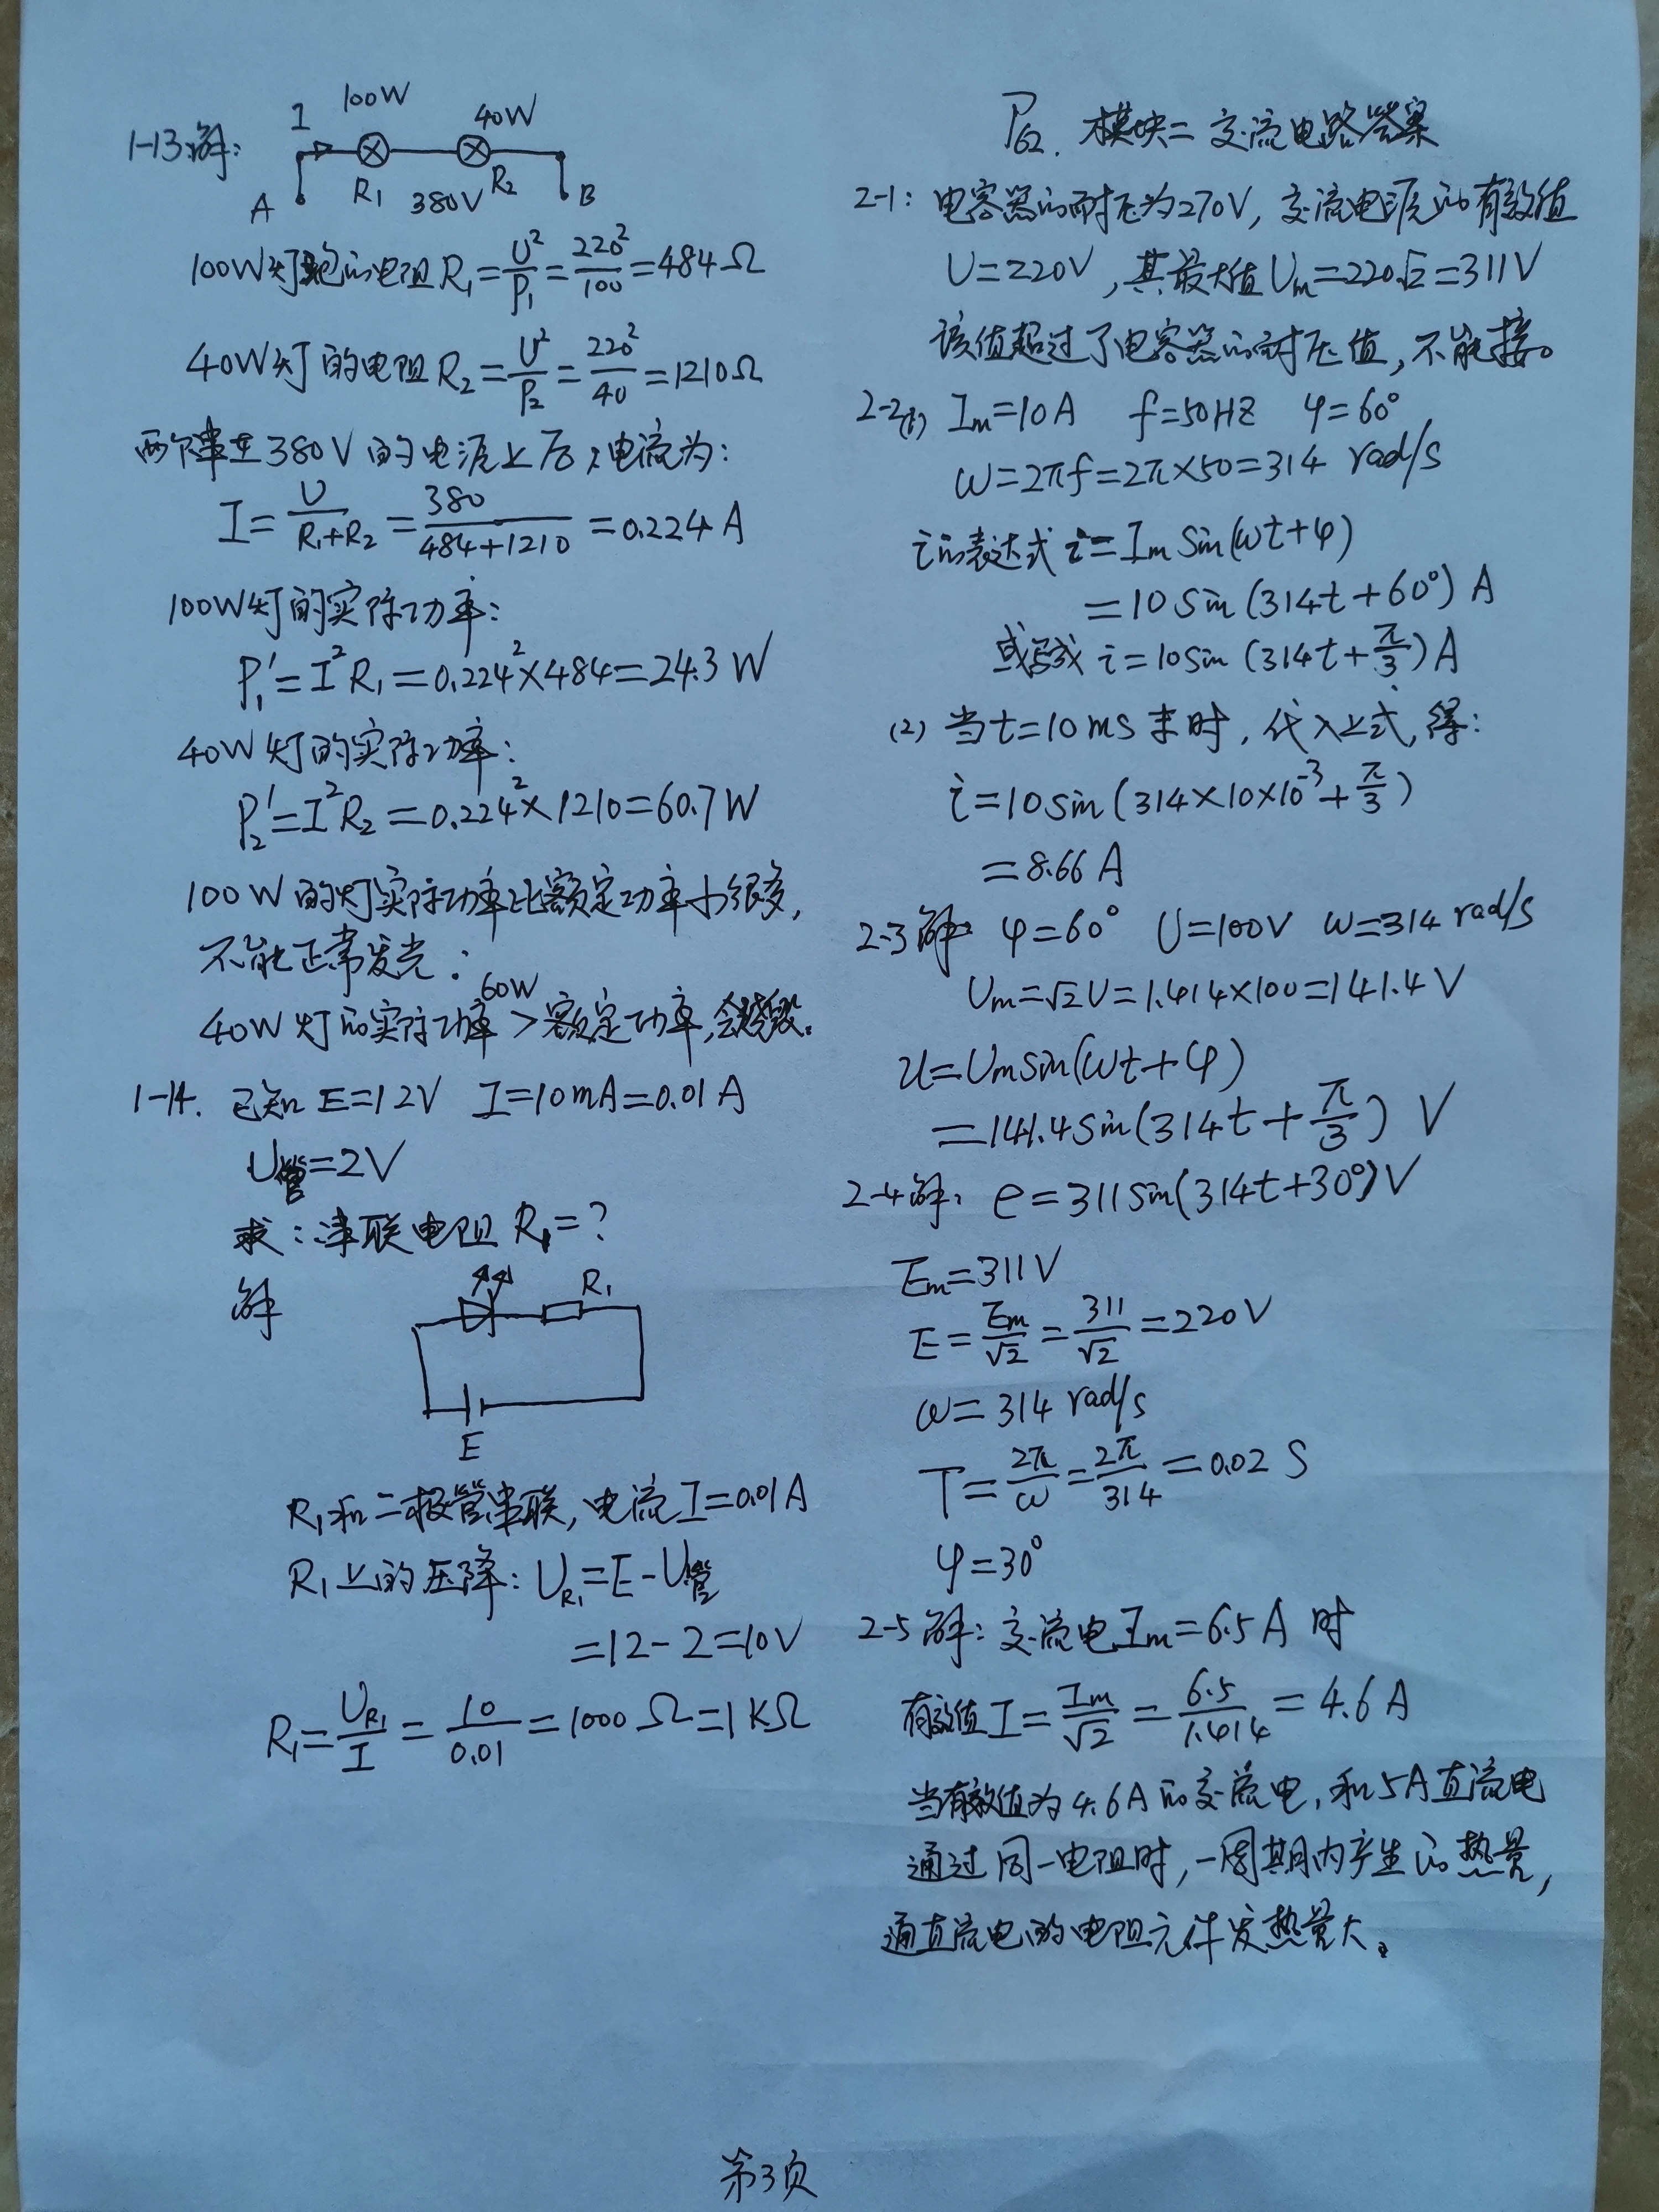 1-13解:
I 100W 40W
A R₁ 380V R₂ B
100W灯泡的电阻R₁=U²/P₁=220²/100=484Ω
40W灯的电阻R₂=U²/P₂=220²/40=1210Ω
两个串在380V的电源上后,电流为:
I=U/(R₁+R₂)=380/(484+1210)=0.224A
100W灯的实际功率:
P₁'=I²R₁=0.224²×484=24.3W
40W灯的实际功率:
P₂'=I²R₂=0.224²×1210=60.7W
100W的灯实际功率比额定功率小很多,
不能正常发光;
60W
40W灯的实际功率>额定功率,会烧毁。
1-14. 已知E=12V I=10mA=0.01A
U管=2V
求:串联电阻R₁=?
解
R₁
E
R₁和二极管串联,电流I=0.01A
R₁上的压降:U_R₁=E-U管
=12-2=10V
R₁=U_R₁/I=10/0.01=1000Ω=1KΩ
P62. 模块二 交流电路答案
2-1:电容器的耐压为270V,交流电源的有效值
U=220V,其最大值Um=220√2=311V
该值超过了电容器的耐压值,不能接。
2-2(1) Im=10A f=50HZ φ=60°
ω=2πf=2π×50=314 rad/s
i的表达式 i=Im Sin(ωt+φ)
=10Sin(314t+60°)A
或写成 i=10Sin(314t+π/3)A
(2) 当t=10ms末时,代入上式,得:
i=10Sin(314×10×10⁻³+π/3)
=8.66A
2-3解: φ=60° U=100V ω=314 rad/s
Um=√2U=1.414×100=141.4V
u=UmSin(ωt+φ)
=141.4Sin(314t+π/3) V
2-4解: e=311Sin(314t+30°)V
Em=311V
E=Em/√2=311/√2=220V
ω=314 rad/s
T=2π/ω=2π/314=0.02S
φ=30°
2-5解:交流电Im=6.5A时
有效值I=Im/√2=6.5/1.414=4.6A
当有效值为4.6A的交流电,和5A直流电
通过同一电阻时,一周期内产生的热量,
通直流电的电阻元件发热量大。
第3页